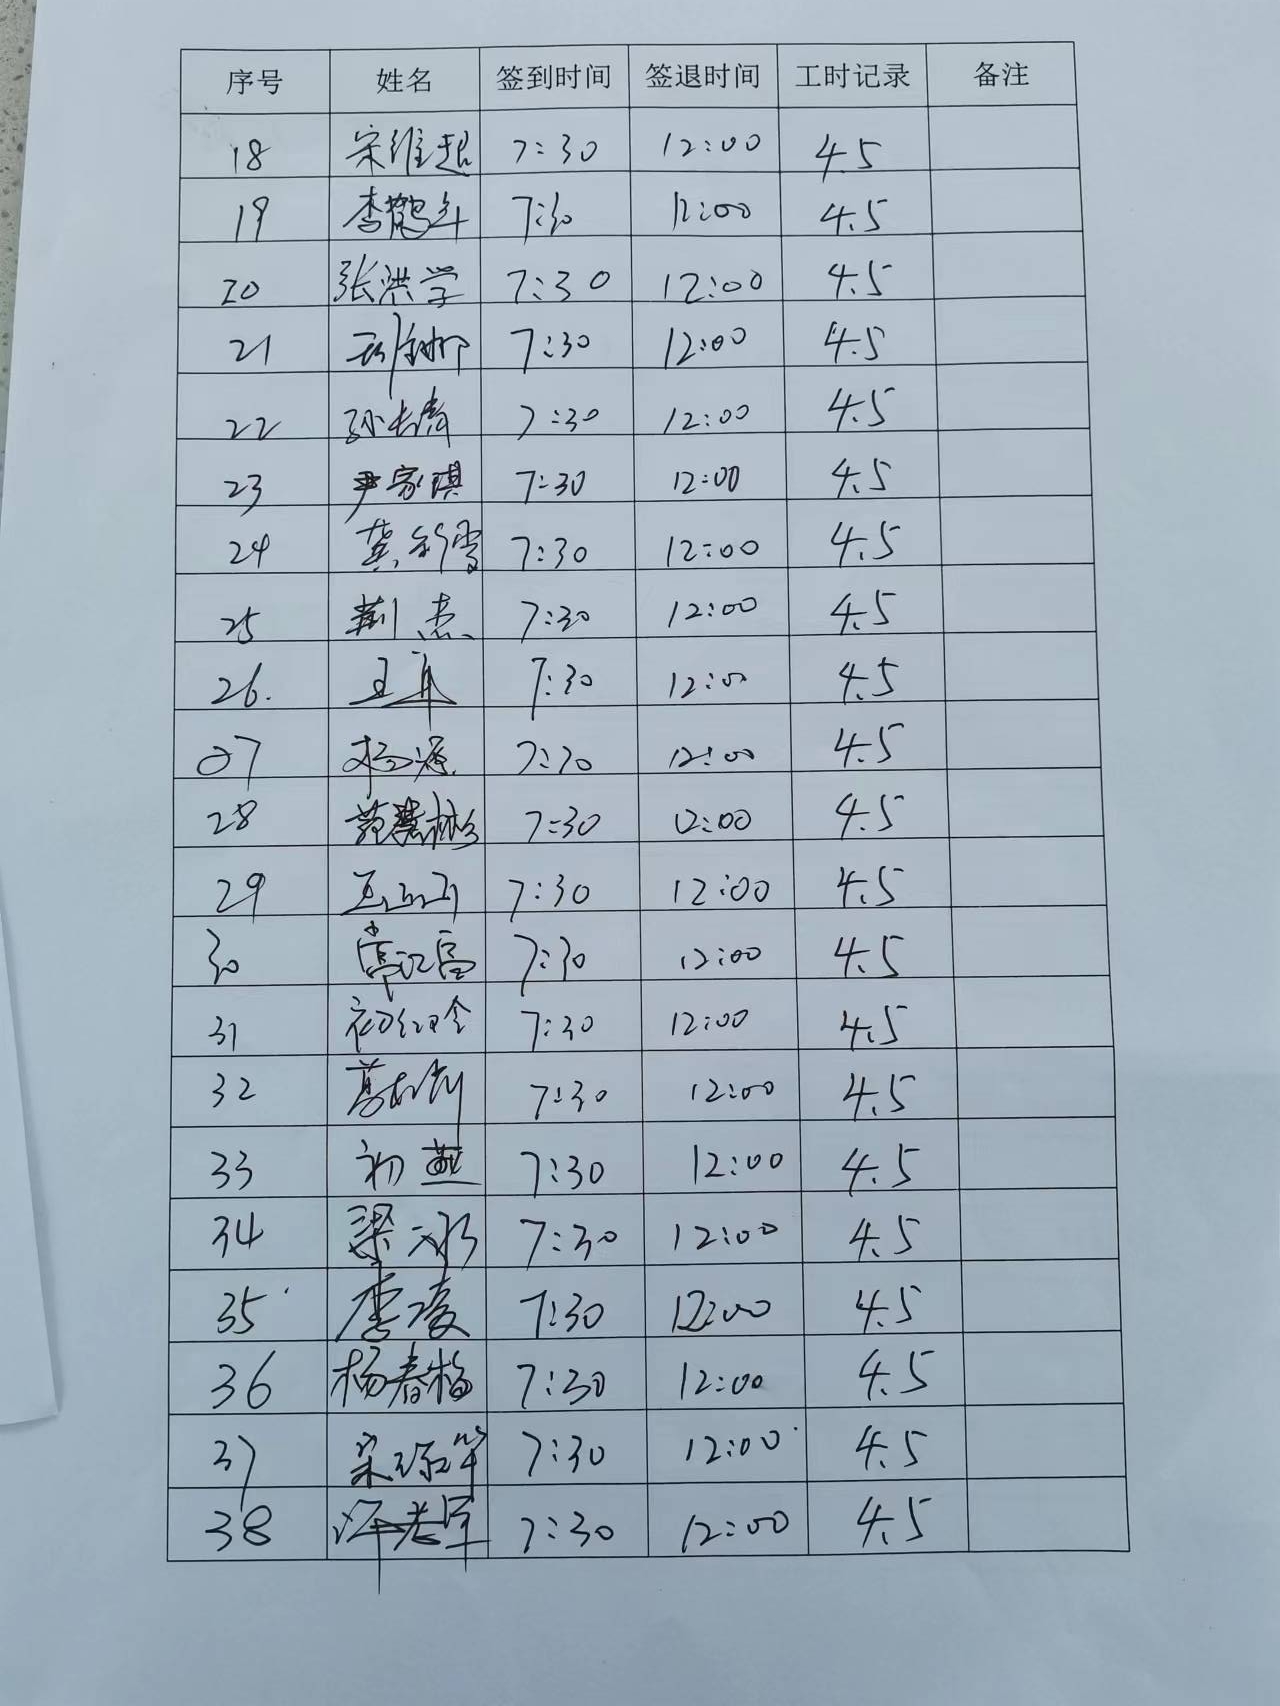 序号 姓名 签到时间 签退时间 工时记录 备注
18 宋维超 7:30 12:00 4.5
19 李鹤年 7:30 12:00 4.5
20 张洪学 7:30 12:00 4.5
21 7:30 12:00 4.5
22 孙长青 7:30 12:00 4.5
23 尹家琪 7:30 12:00 4.5
24 龚彩雪 7:30 12:00 4.5
25 荆杰 7:30 12:00 4.5
26. 王军 7:30 12:00 4.5
27 杨源 7:30 12:00 4.5
28 范慧彬 7:30 12:00 4.5
29 7:30 12:00 4.5
30 常江富 7:30 12:00 4.5
31 初红玲 7:30 12:00 4.5
32 7:30 12:00 4.5
33 初燕 7:30 12:00 4.5
34 梁冰 7:30 12:00 4.5
35 李凌 7:30 12:00 4.5
36 杨春梅 7:30 12:00 4.5
37 7:30 12:00 4.5
38 7:30 12:00 4.5